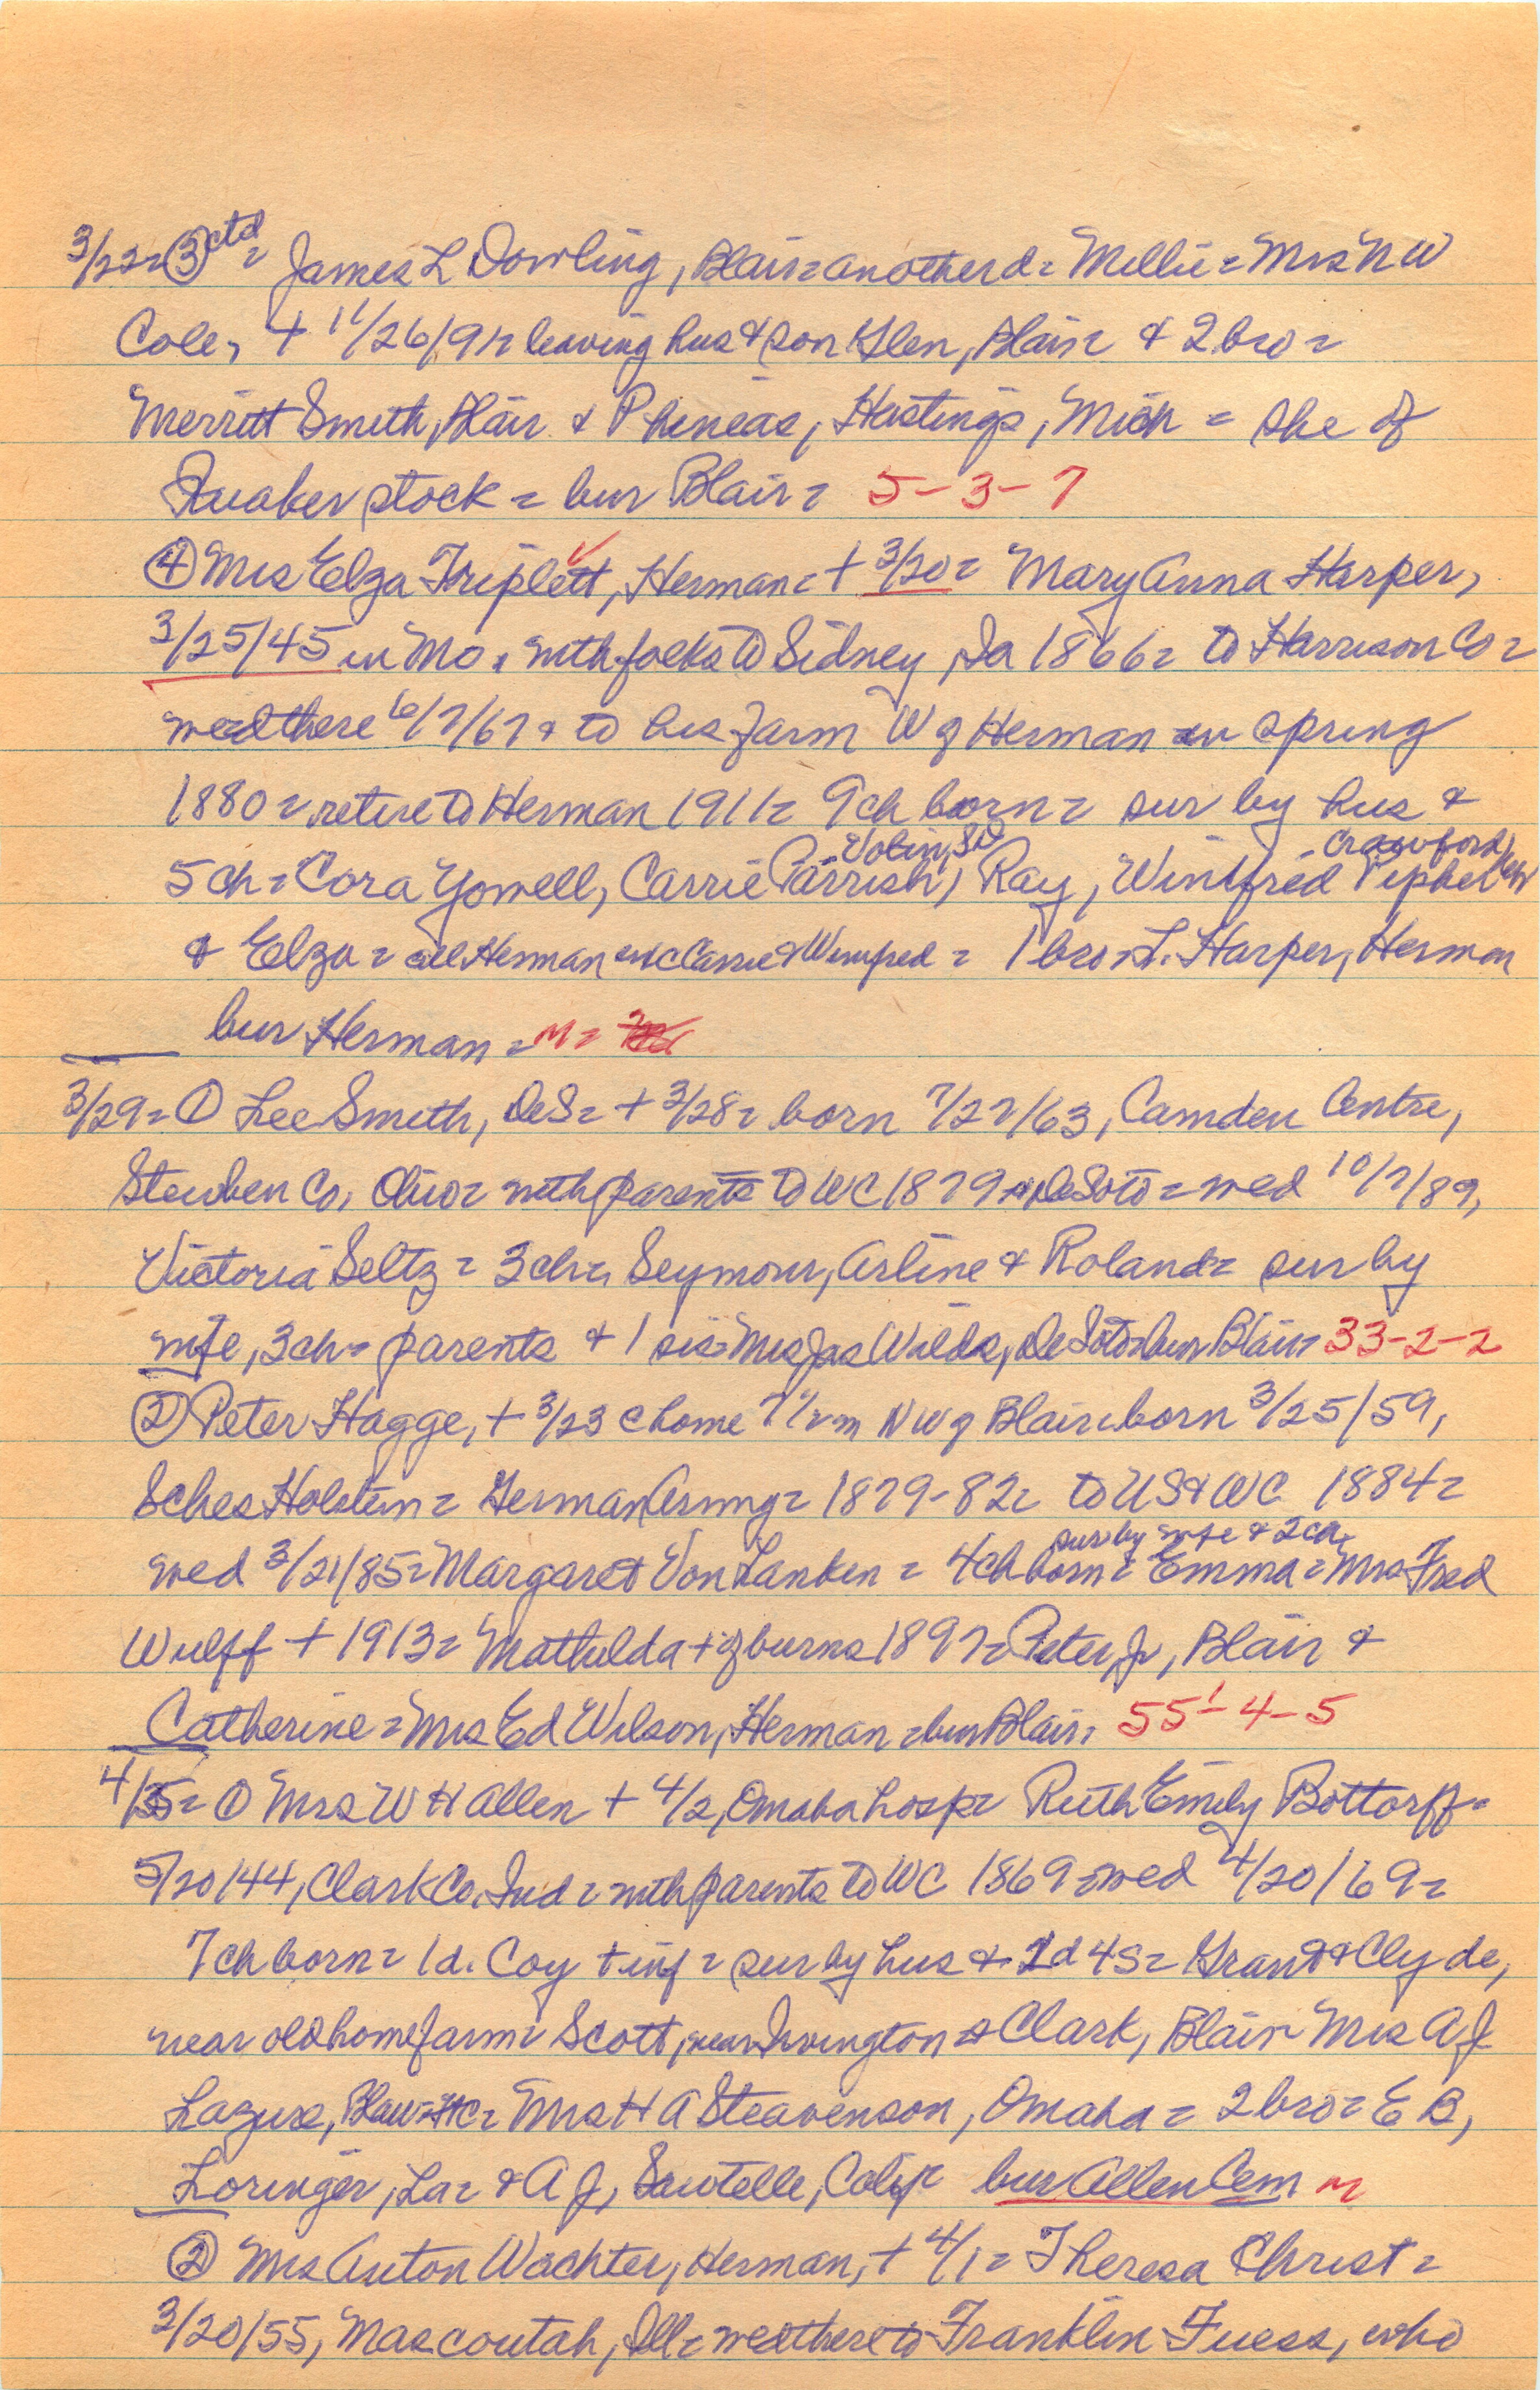 3/22= ③ ctd= James L Dowling, Blair= another d= Millie= Mrs N W
Cole, + 11/26/91= leaving hus & son Glen, Blair= & 2 bro=
Merritt Smith, Blair & Phineas, Hastings, Mich = she of
Quaker stock = bur Blair= 5-3-7
④ Mrs Elza Triplett, Herman= + 3/20= Mary Anna Harper,
3/25/45 in Mo, with folks to Sidney, Ia 1866= to Harrison Co=
wed there 6/7/67 & to his farm W of Herman in spring
1880= retire to Herman 1911= 9 ch born= sur by hus &
5 ch= Cora Yowell, Carrie Parrish, Volin, SD Ray, Winifred Pipher, Crawford,
& Elza= all Herman exc Carrie & Winifred = 1 bro= L. Harper, Herman
bur Herman = M=
3/29= ① Lee Smith, DeS= + 3/28= born 7/27/63, Camden Centre,
Steuben Co, Ohio= with parents to WC 1879 DeSoto= wed 10/7/89,
Victoria Seltz = 3 ch= Seymour, Arline & Roland= sur by
wife, 3 ch= parents & 1 sis= Mrs Jas Wilds, De Soto= bur Blair= 33-2-2
② Peter Hagge, + 3/23 @ home 7 1/2 m NW of Blair= born 3/25/59,
Schles Holstein = German Army= 1879-82= to US & WC 1884=
wed 3/21/85= Margaret Von Lanken = 4 ch born= sur by wife & 2 ch, Emma= Mrs Fred
Wulff + 1913= Mathilda + of burns 1897= Peter, Jr, Blair &
Catherine= Mrs Ed Wilson, Herman= bur Blair, 55'-4-5
4/5= ① Mrs W H Allen + 4/2, Omaha hosp= Ruth Emily Bottorff=
5/20/44, Clark Co, Ind= with parents to WC 1869= wed 4/20/69=
7 ch born= 1 d. Coy + inf = sur by hus & 2 d 4 s= Grant & Clyde,
near old home farm= Scott, near Irvington & Clark, Blair= Mrs A J
Lazure, Blair= Mrs H A Steavenson, Omaha = 2 bro= E B,
Loringer, La= & A J, Sawtelle, Calif= bur Allen Cem M
② Mrs Anton Wachter, Herman, + 4/1= Theresa Christ=
3/20/55, Mascoutah, Ill= wed there to Franklin Fuess, who